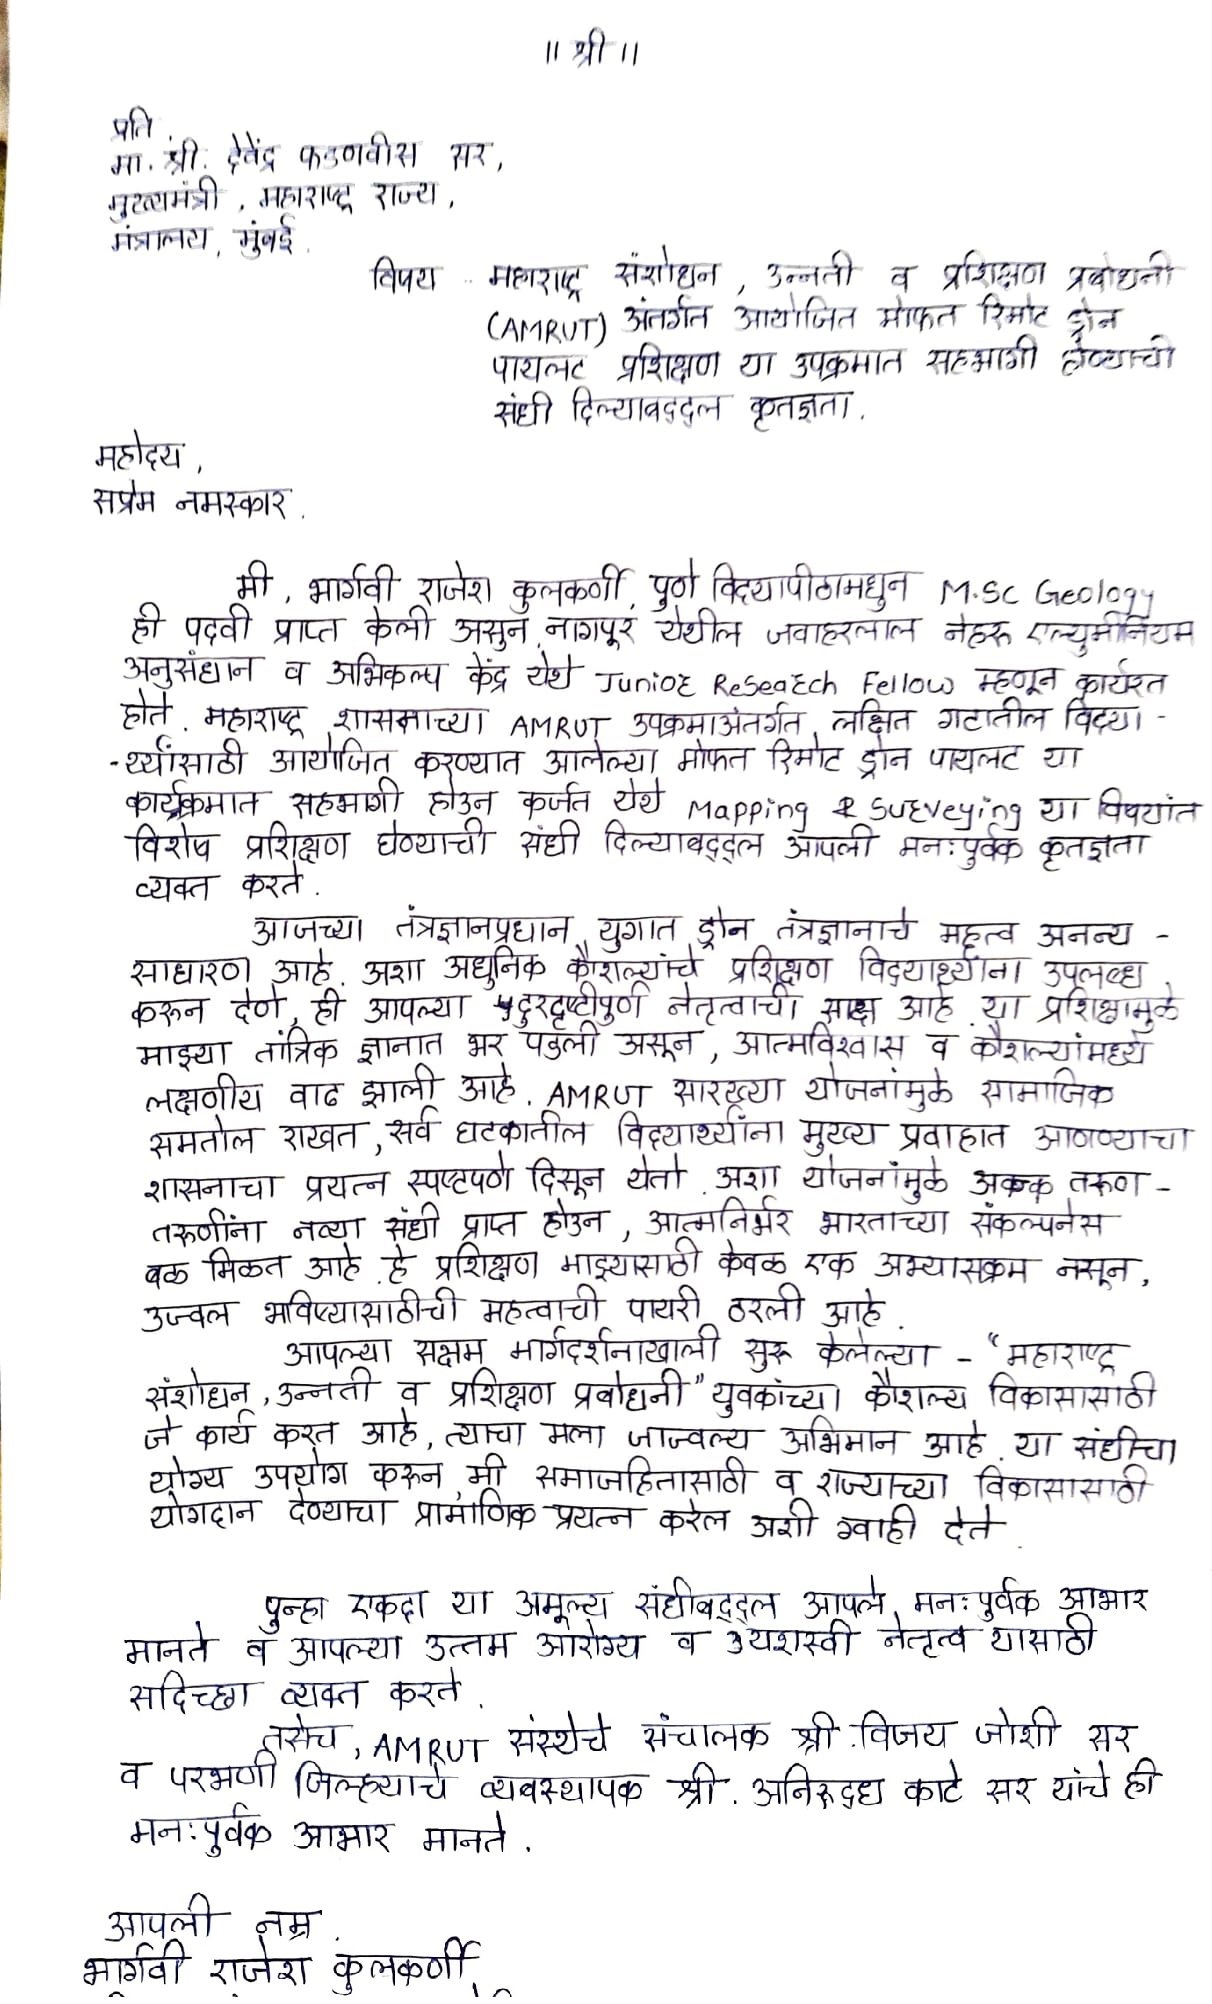 ॥ श्री ॥
प्रति,
मा. श्री. देवेंद्र फडणवीस सर,
मुख्यमंत्री, महाराष्ट्र राज्य,
मंत्रालय, मुंबई.
विषय :- महाराष्ट्र संशोधन, उन्नती व प्रशिक्षण प्रबोधनी
(AMRUT) अंतर्गत आयोजित मोफत रिमोट ड्रोन
पायलट प्रशिक्षण या उपक्रमात सहभागी होण्याची
संधी दिल्याबद्दल कृतज्ञता.
महोदय,
सप्रेम नमस्कार.
मी, भार्गवी राजेश कुलकर्णी, पुणे विद्यापीठामधुन M.Sc Geology
ही पदवी प्राप्त केली असुन, नागपूर येथील जवाहरलाल नेहरू एल्युमीनियम
अनुसंधान व अभिकल्प केंद्र येथे Junior Research Fellow म्हणून कार्यरत
होते. महाराष्ट्र शासनाच्या AMRUT उपक्रमाअंतर्गत, लक्षित गटातील विद्या -
-र्थ्यांसाठी आयोजित करण्यात आलेल्या मोफत रिमोट ड्रोन पायलट या
कार्यक्रमात सहभागी होउन कर्जत येथे Mapping & Surveying या विषयांत
विशेष प्रशिक्षण घेण्याची संधी दिल्याबद्दल आपली मनःपुर्वक कृतज्ञता
व्यक्त करते.
आजच्या तंत्रज्ञानप्रधान युगात ड्रोन तंत्रज्ञानाचे महत्व अनन्य -
साधारण आहे. अशा अधुनिक कौशल्यांचे प्रशिक्षण विद्यार्थ्यांना उपलब्ध
करून देणे, ही आपल्या दुरदृष्टीपुर्ण नेतृत्वाची साक्ष आहे. या प्रशिक्षामुळे
माझ्या तांत्रिक ज्ञानात भर पडली असून, आत्मविश्वास व कौशल्यांमध्ये
लक्षणीय वाढ झाली आहे. AMRUT सारख्या योजनांमुळे सामाजिक
समतोल राखत, सर्व घटकातील विद्यार्थ्यांना मुख्य प्रवाहात आणण्याचा
शासनाचा प्रयत्न स्पष्टपणे दिसून येतो. अशा योजनांमुळे तरूण -
तरूणींना नव्या संधी प्राप्त होउन, आत्मनिर्भर भारताच्या संकल्पनेस
बळ मिळत आहे. हे प्रशिक्षण माझ्यासाठी केवळ एक अभ्यासक्रम नसून,
उज्वल भविष्यासाठीची महत्वाची पायरी ठरली आहे.
आपल्या सक्षम मार्गदर्शनाखाली सुरू केलेल्या - "महाराष्ट्र
संशोधन, उन्नती व प्रशिक्षण प्रबोधनी" युवकांच्या कौशल्य विकासासाठी
जे कार्य करत आहे, त्याचा मला जाज्वल्य अभिमान आहे. या संधीचा
योग्य उपयोग करून, मी समाजहितासाठी व राज्याच्या विकासासाठी
योगदान देण्याचा प्रामाणिक प्रयत्न करेल अशी ग्वाही देते.
पुन्हा एकदा या अमूल्य संधीबद्दल आपले मनःपुर्वक आभार
मानते व आपल्या उत्तम आरोग्य व यशस्वी नेतृत्व यासाठी
सदिच्छा व्यक्त करते.
तसेच, AMRUT संस्थेचे संचालक श्री. विजय जोशी सर
व परभणी जिल्ह्याचे व्यवस्थापक श्री. अनिरुद्ध काटे सर यांचे ही
मनःपुर्वक आभार मानते.
आपली नम्र,
भार्गवी राजेश कुलकर्णी,